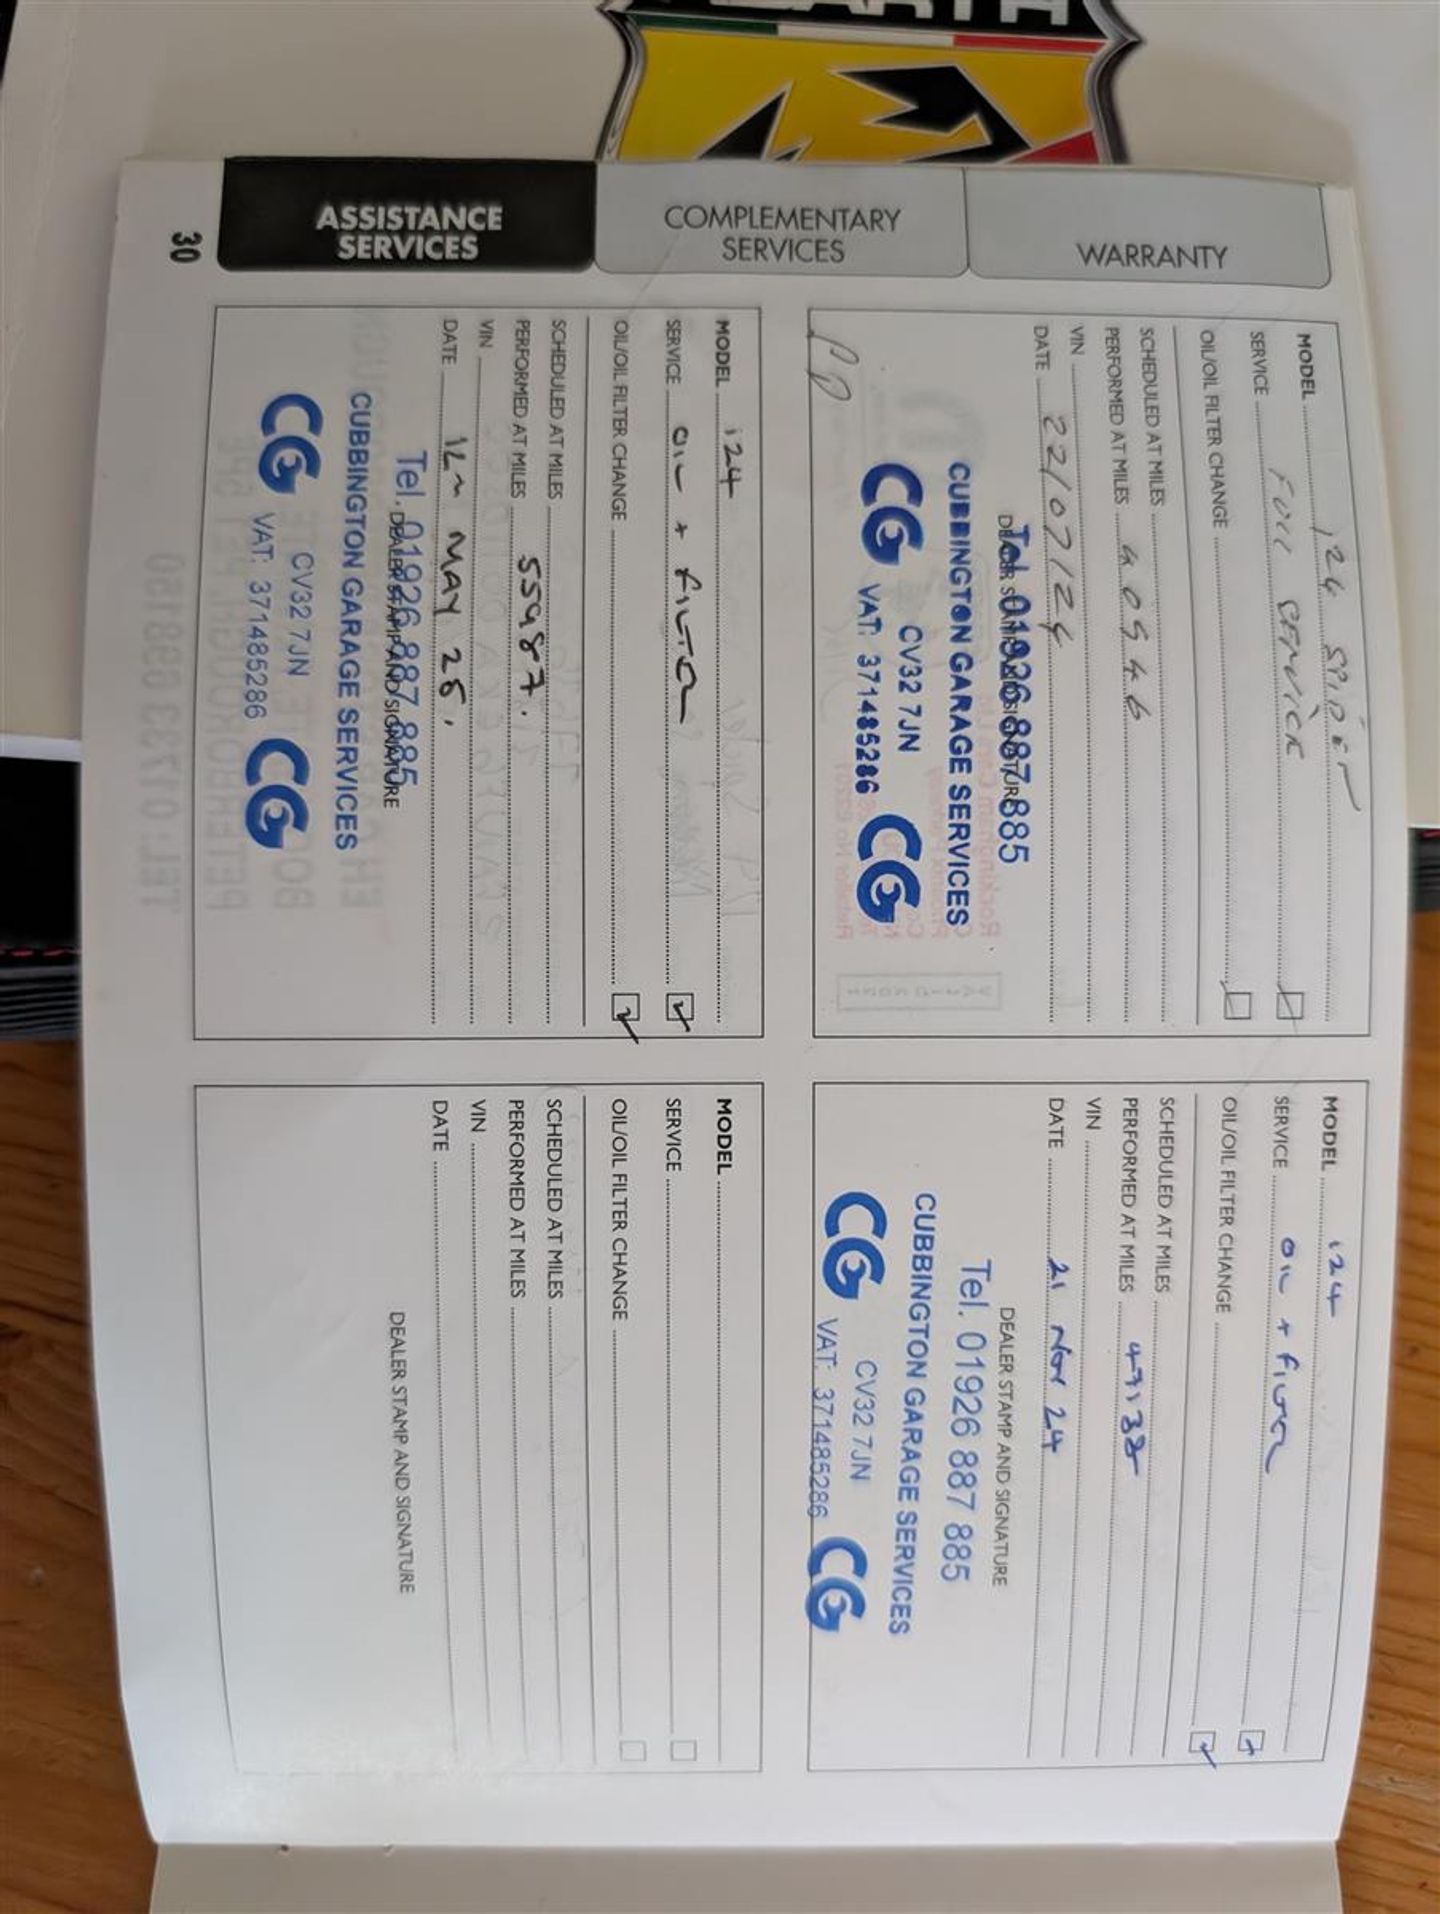 ABARTH
ASSISTANCE
SERVICES
COMPLEMENTARY
SERVICES
WARRANTY
30
MODEL 124 SPIDER
SERVICE FULL SERVICE
OIL/OIL FILTER CHANGE
SCHEDULED AT MILES
PERFORMED AT MILES 40546
VIN
DATE 22/07/24
DEALER STAMP AND SIGNATURE
Tel. 01926 887 885
CUBBINGTON GARAGE SERVICES
CG CV32 7JN CG
VAT: 371485286
MODEL 124
SERVICE OIL + FILTER
OIL/OIL FILTER CHANGE
SCHEDULED AT MILES
PERFORMED AT MILES 47132
VIN
DATE 21 NOV 24
DEALER STAMP AND SIGNATURE
Tel. 01926 887 885
CUBBINGTON GARAGE SERVICES
CG CV32 7JN CG
VAT: 371485286
MODEL 124
SERVICE OIL + FILTER
OIL/OIL FILTER CHANGE
SCHEDULED AT MILES
PERFORMED AT MILES 55987.
VIN
DATE MAY 25.
DEALER STAMP AND SIGNATURE
Tel. 01926 887 885
CUBBINGTON GARAGE SERVICES
CG CV32 7JN CG
VAT: 371485286
MODEL
SERVICE
OIL/OIL FILTER CHANGE
SCHEDULED AT MILES
PERFORMED AT MILES
VIN
DATE
DEALER STAMP AND SIGNATURE